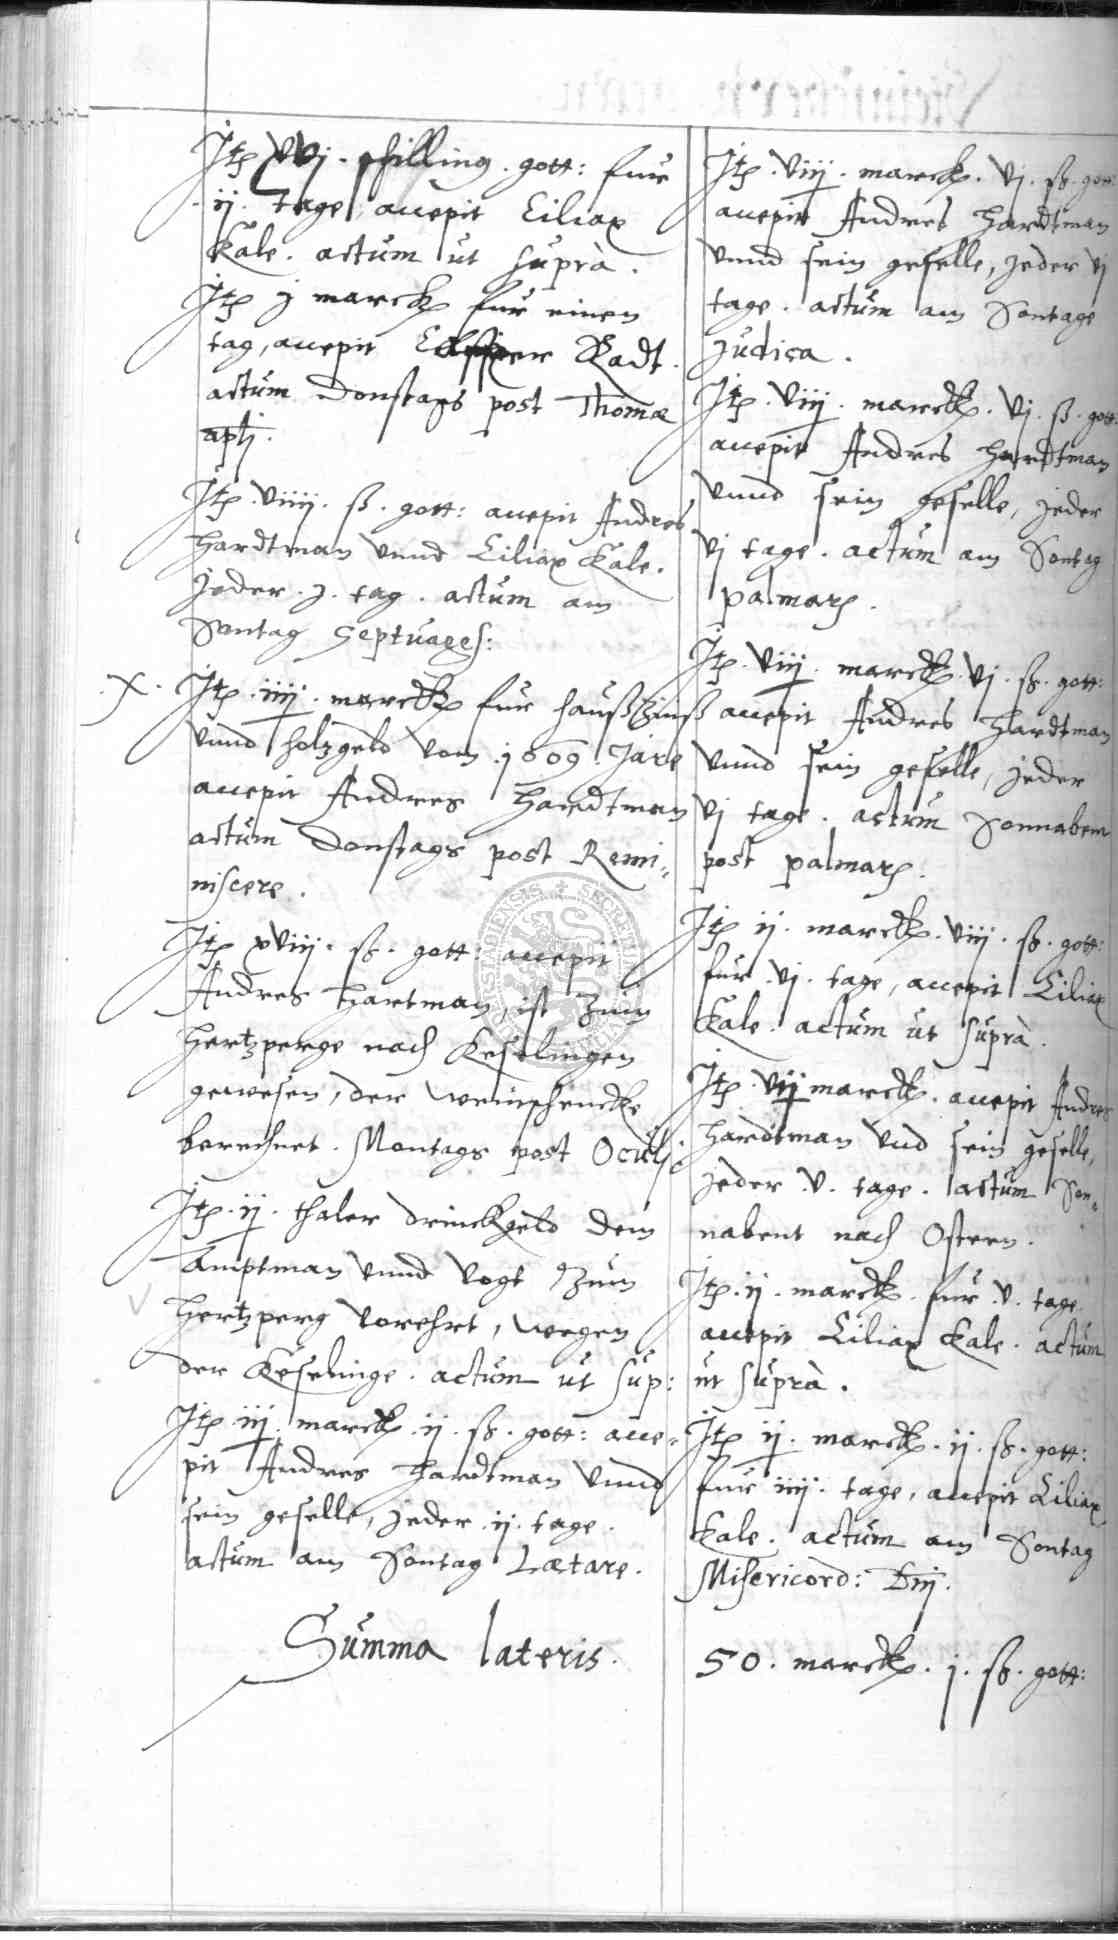 Itp xvj. schilling. gott: fur
ij. tage, accepit Ciliax
Kale. actum ut suprà.
Itp j marck fur einen
tag, accepit Radt.
actum Donstags post Thomæ
aplj.
Itp. viiij. ß. gott: accepit Andres
Hardtman unnd Ciliax Kale.
jeder. j. tag. actum am
Sontag Septuages:
.X. Itp. iiij. marck fur haußzinß
unnd holzgeld vom .1609. Jare
accepit Andres Hardtman
actum Donstags post Remi„
niscere.
Itp xviij. ß. gott: accepit
Andres Hartman, ist zum
Hertzperge nach Keselingen
gewesen, der weinschencke
berechnet. Montags post Oculj.
Itp. ij. thaler drinckgeld dem
Amptman unnd Vogt zum
Hertzperg vorehrt, wegen
der Keselinge. actum ut sup:
Itp. iij. marck. ij. ß. gott: acce„
pit Andres Hardtman unnd
sein geselle, jeder .ij. tage.
actum am Sontag Lætare.
Summa lateris.
Itp. viij. marck. vj. ß. gott:
accepit Andres Hardtman
unnd sein geselle, jeder vj
tage. actum am Sontage
Judica.
Itp. viij. marck. vj. ß. gott:
accepit Andres Hardtman
unnd sein geselle, jeder
vj tage. actum am Sontag
palmarj.
Itp. viij. marck. vj. ß. gott:
accepit Andres Hardtman
unnd sein geselle, jeder
vj tage. actum Sonnabent
post palmarj.
Itp ij. marck. viij. ß. gott:
fur .vj. tage, accepit Ciliax
Kale. actum ut suprà.
Itp. vij marck. accepit Andres
Hardtman und sein geselle,
jeder .v. tage. actum Son„
nabent nach Ostern.
Itp. ij. marck. fur .v. tage
accepit Ciliax Kale. actum
ut suprà.
Itp ij. marck. ij. ß. gott:
fur iiij. tage, accepit Ciliax
Kale. actum am Sontag
Misericord: Dnj.
50. marck. j. ß. gott: